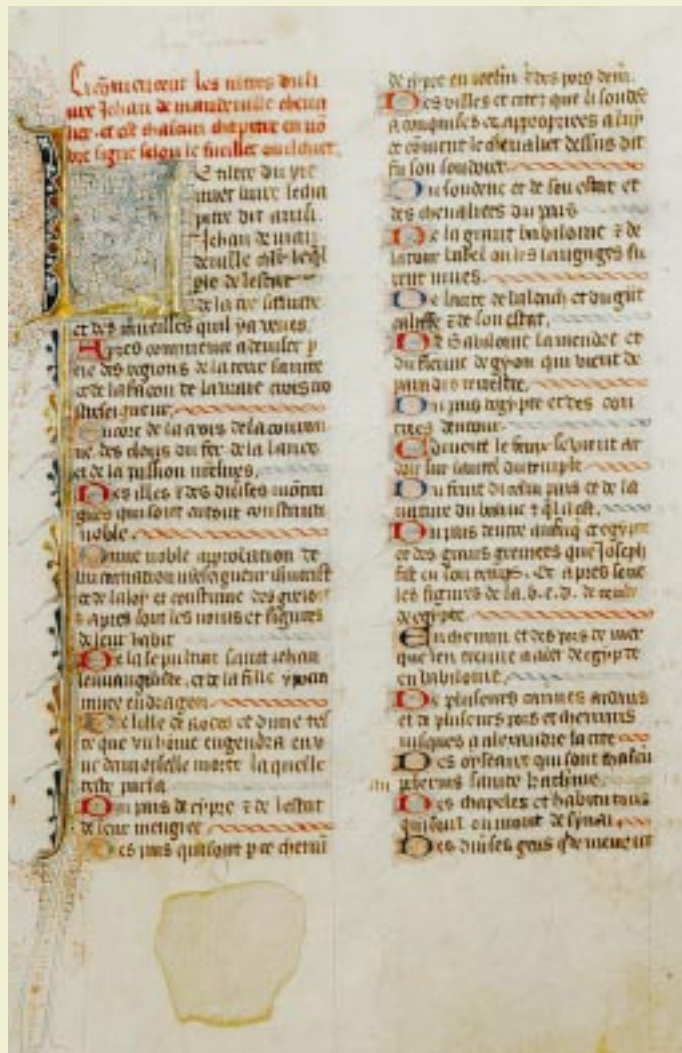 Cy commencent les titres du li
ure Jehan de mandeuille cheua
lier et est chascun chapitre en no
bre signe selon le fueillet ou il chiet
e tiltre du pre
mier liure
pitre dit
Jehan de man
deuille
ple de lestat
de la tre saincte
et des merueilles quil y a veues
Apres commence a deuiser
des regions de la terre saincte
et de la facon de la vraie crois no
stre seigneur
Encore de la crois de la couron
ne des clous du fer de la lance
et de la passion
Des illes et des diuses
gnes qui sont entour constanti
noble
approbation de
seigneur
et de la loy et coustume des
apres sont les noms et figures
de leur habit
De la sepulture saint Jehan
leuuangeliste et de la fille
muee en dragon
De lille de et dune tel
te que vn home engendra en v
ne damoiselle morte la quelle
teste
Du pais de cypre et de lestat
de leur mengier
Des pais qui sont par ce chemin
de cypre en et des pors
Des villes et citez que li soudã
a conquises et appropriees a luy
et coment le cheualier dessus dit
fu son soudoier
Du soudenc et de son estat et
des cheualiers du pais
De la grant babiloine et de
la tour babel ou les languages fu
rent muez
De baldach et du
calisse et de son estat
De Babiloine la mendre et
du fleuue de gyon qui vient de
paradis terrestre
Du pais degypte et des con
trees dentour
Coment le vient ar
doir sur lautel du temple
Du fruit dicelui pais et de la
nature du bausme et quil est
Du pais dentre et egypte
et des grans greniers que Joseph
fist en son temps. Et apres sont
les figures de la .b.c.d. de
de egypte
Du chemin et des pors de mer
que len treuue a aler de egypte
en babiloine
De pluseurs
et de pluseurs pors et chemins
iusques a alexandre la cite
Des oyseaux qui font chascun
saincte katherine
Des chapeles et habitations
qui sont ou mont de synai
Des diuses gens